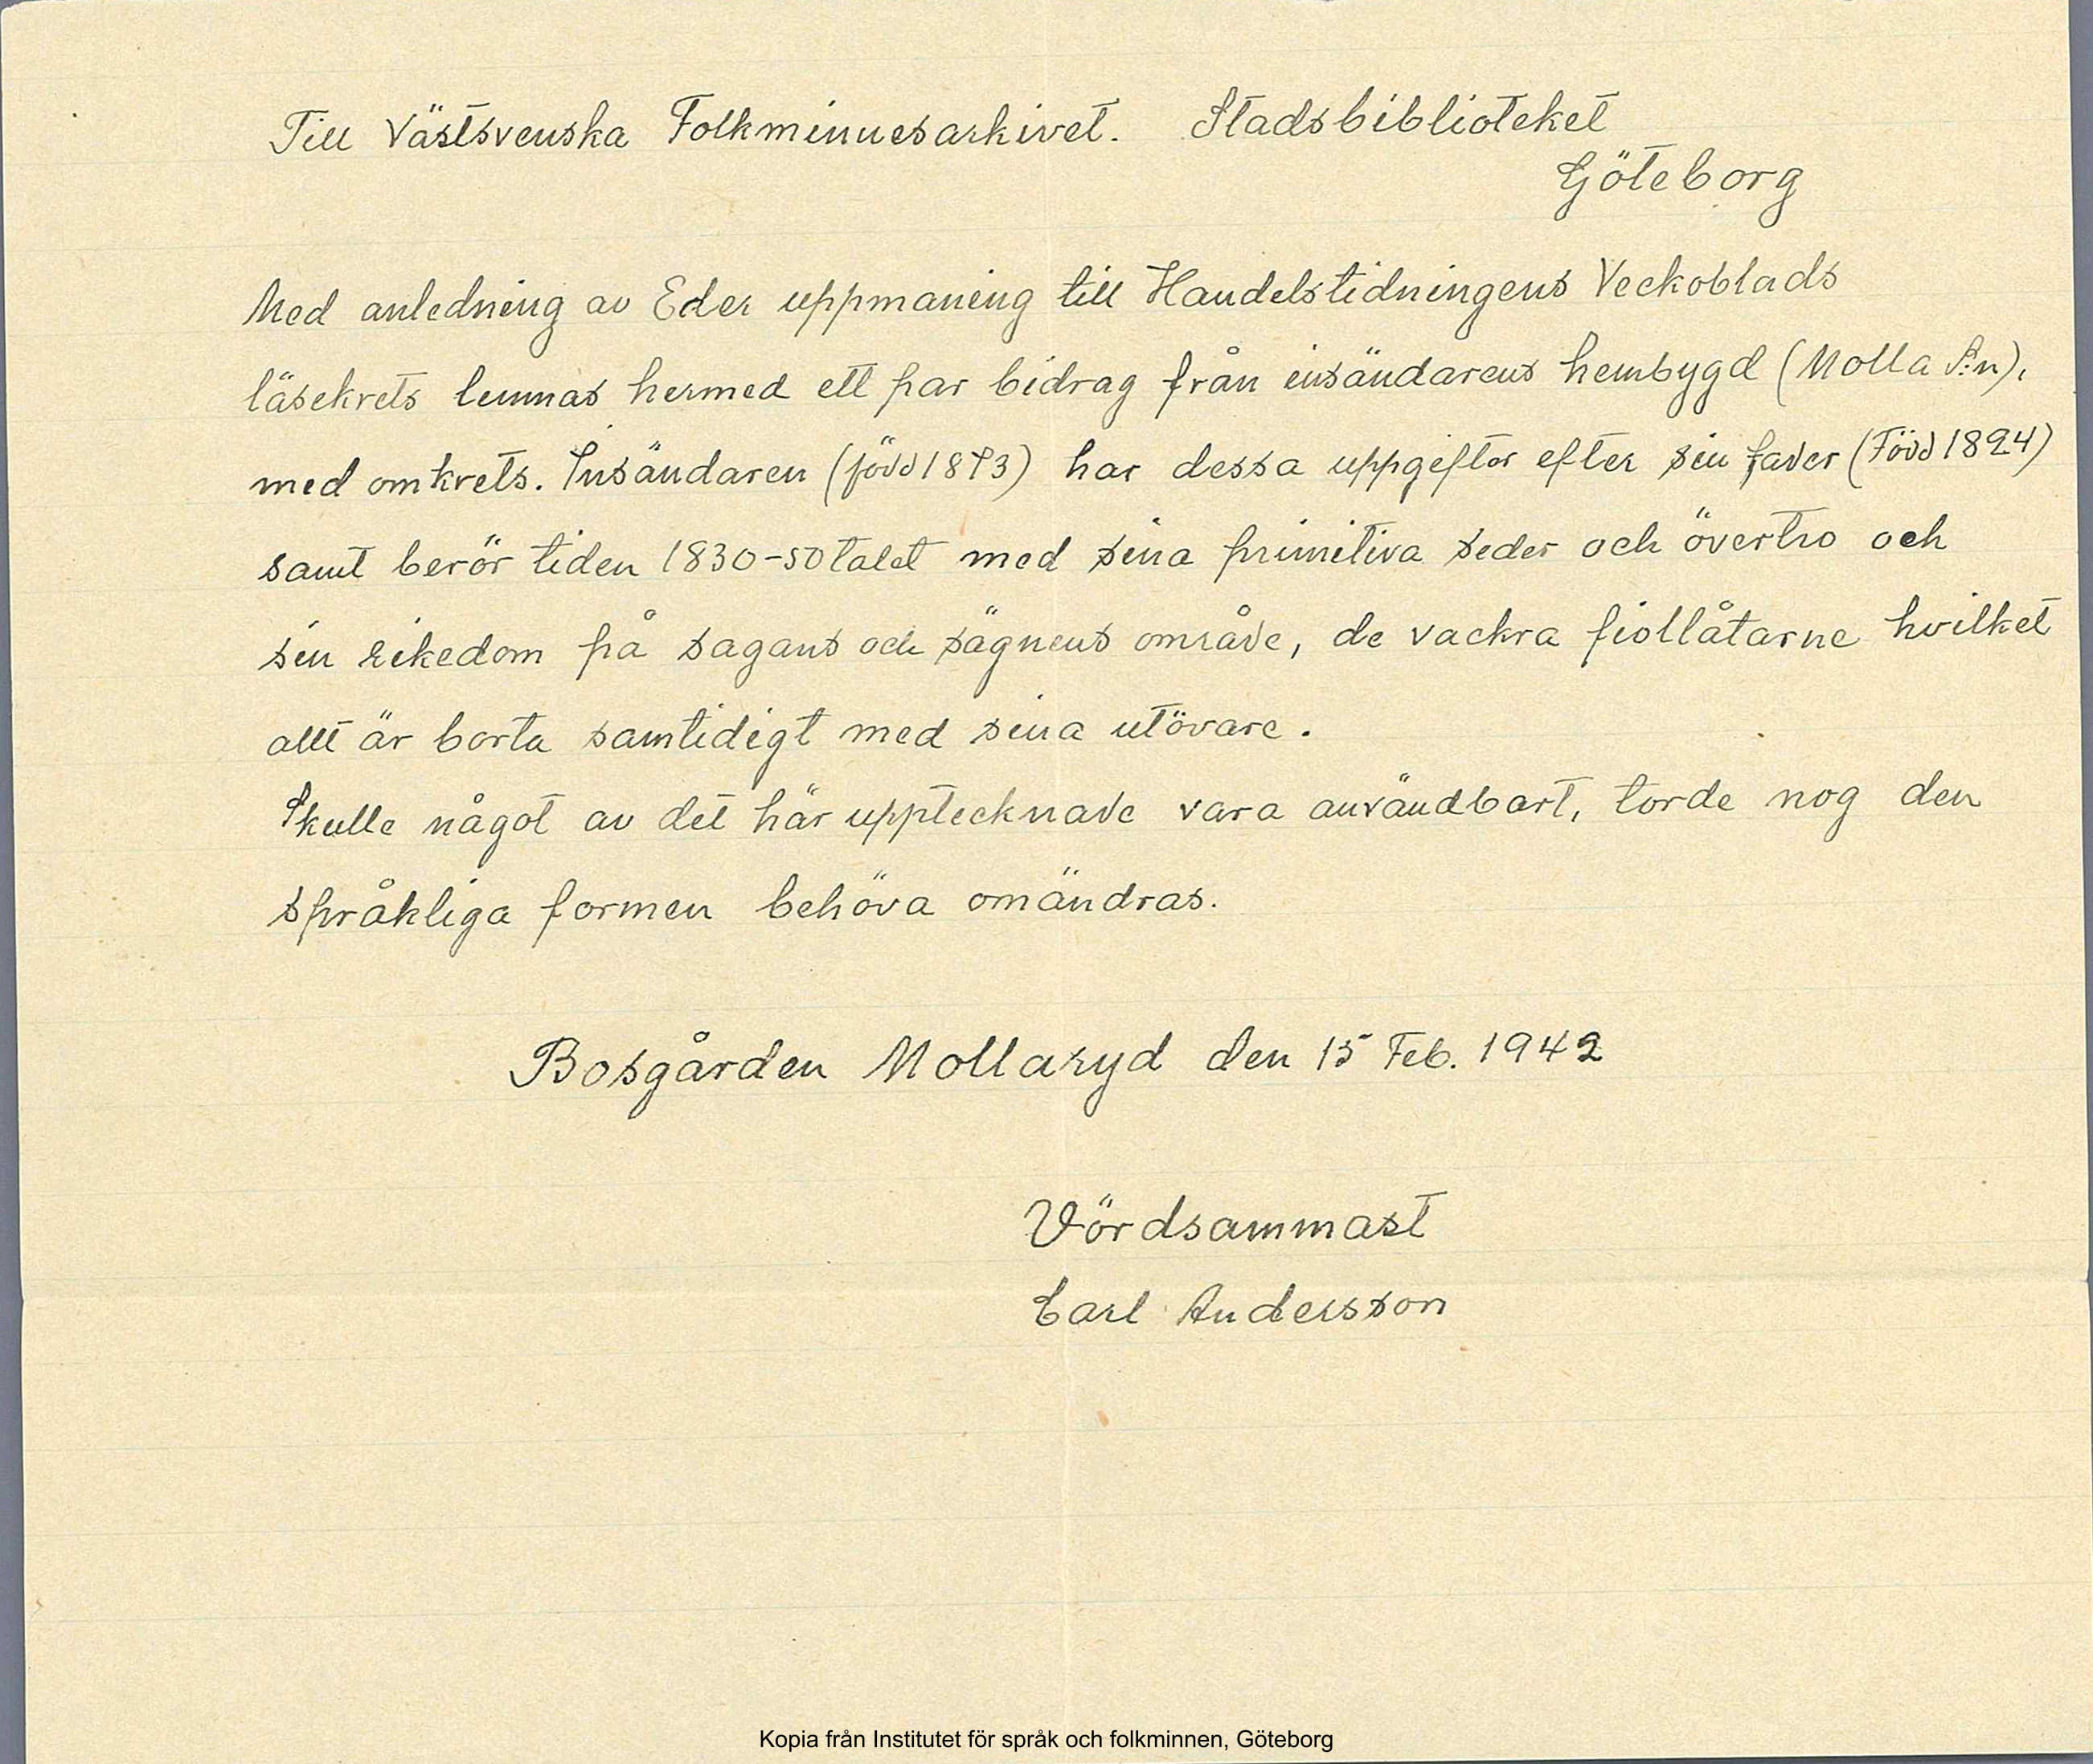 Till Västsvenska Folkminnesarkivet. Stadsbiblioteket
Göteborg
Med anledning av Eder uppmaning till Handelstidningens Veckoblads
läsekrets lemnas hermed ett par bidrag från insändarens hembygd (Molla S:n),
med omkrets. Insändaren (född 1873) har dessa uppgifter efter sin fader (Född 1824)
samt berör tiden 1830-50talet med sina primitiva seder och övertro och
sin rikedom på sagans och sägnens område, de vackra fiollåtarne hvilket
allt är borta samtidigt med sina utövare.
Skulle något av det här upptecknade vara användbart, torde nog den
språkliga formen behöva omändras.
Bosgården Mollaryd den 15 Feb. 1942
Vördsammast
Carl Andersson
Kopia från Institutet för språk och folkminnen, Göteborg